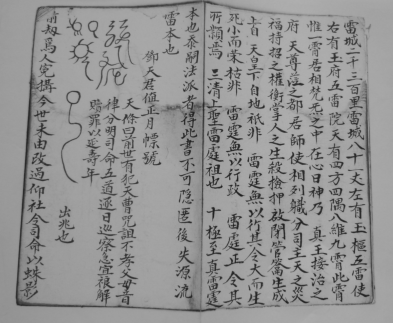 雷城二千三百里雷城八十一丈左有玉樞五雷使
右有玉府五雷院天有四方四隅八維九霄此霄
惟一霄居相梵炁之中在心日神乃 真王按治之
府 天尊蒞之都居師使相列職分司主天之災
福持招之權衡掌人之生殺檢押啟閉管籥生成
上自 天皇下自地祇非 雷霆無以行其令大而生
死小而榮枯非 雷霆無以行政 雷霆正令其
所隸焉 三清上聖雷霆祖也 十極至真雷霆
本也泰嗣法派者得此書不可隱匿後失源流
雷本也
鄧天君值正月 標號
天條曰前世有犯天曹咒詛不孝父母音
律分明司命五道逐日巡察急宜狠解
賠罪以延壽年
出兆也
前劫為人完攝今世未由改過仰社令司命以蛛影